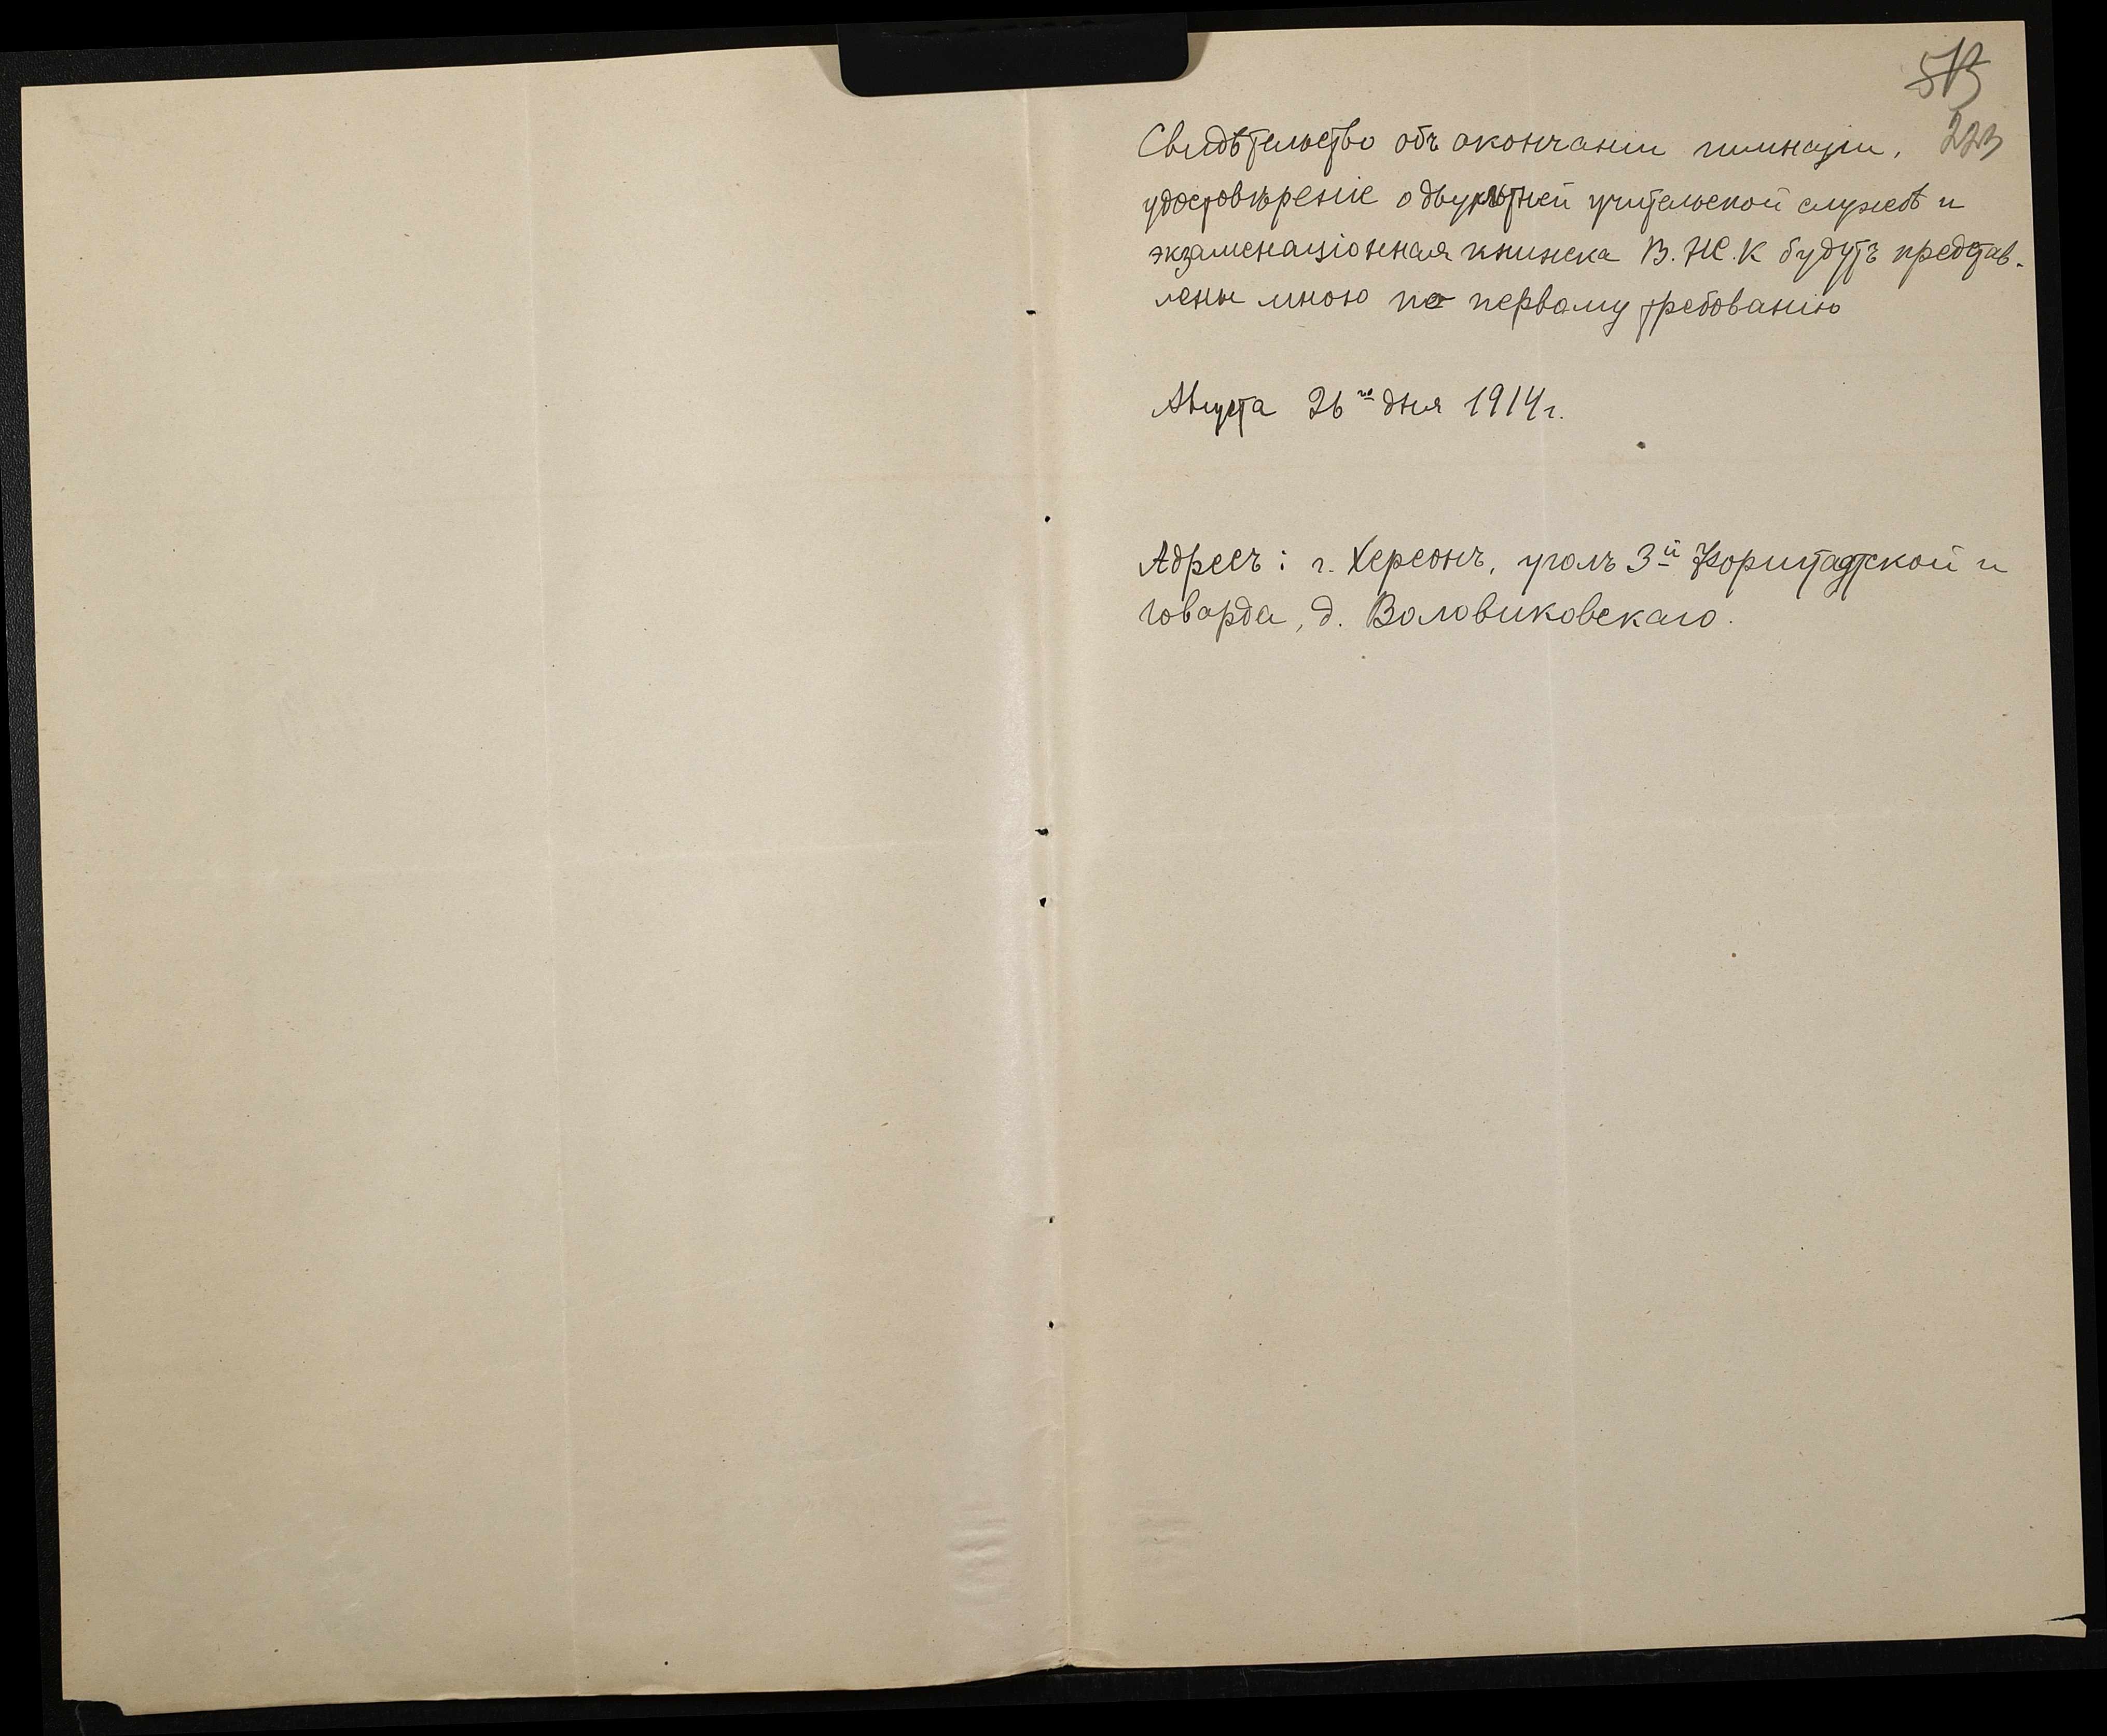 513
223
Свидѣтельство объ окончаніи гимназіи,
удостовѣреніе о двухлѣтней учительской службѣ и
экзаменаціонная книжка В.Ж.К будутъ представ-
лены мною по первому требованію
Августа 26го дня 1914 г.
Адресъ: г. Херсонъ, уголъ 3й Форштадтской и
Говарда, д. Воловиковскаго.